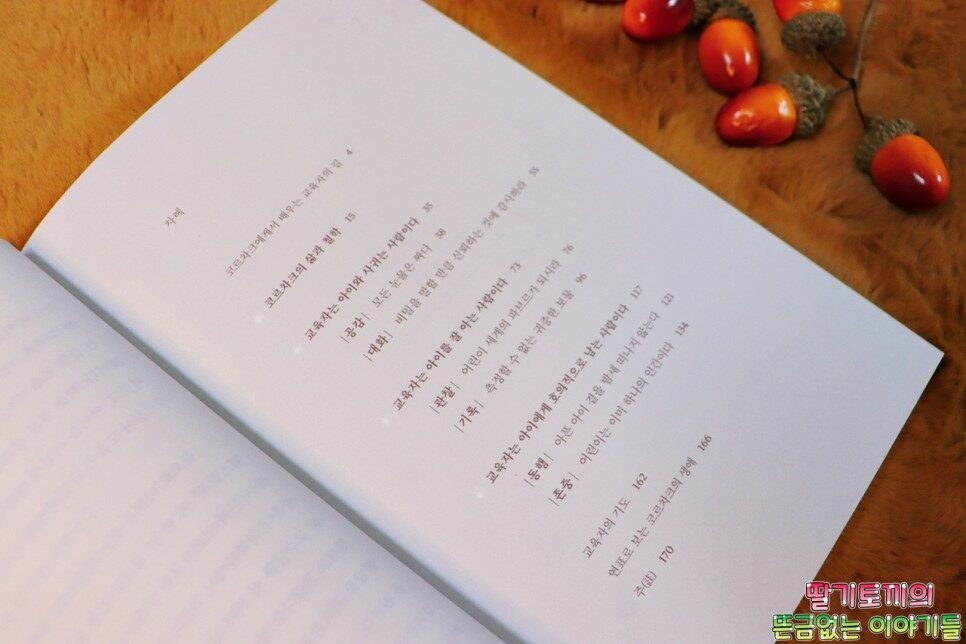 차례
코르차크에게서 배우는 교육자의 길 4
코르차크의 삶과 철학 15
교육자는 아이와 사귀는 사람이다 35
|공감| 모든 눈물은 짜다 38
|대화| 비밀을 말할 만큼 신뢰하는 것에 감사하라 55
교육자는 아이를 잘 아는 사람이다 73
|관찰| 어린이 세계의 파브르가 되시라 76
|기록| 측정할 수 없는 귀중한 보물 96
교육자는 아이에게 호의적으로 남는 사람이다 117
|동행| 아픈 아이 곁을 밤새 떠나지 않는다 121
|존중| 어린이는 이미 하나의 인간이다 134
교육자의 기도 162
연표로 보는 코르차크의 생애 166
주(註) 170
딸기토끼의
뜬금없는 이야기들